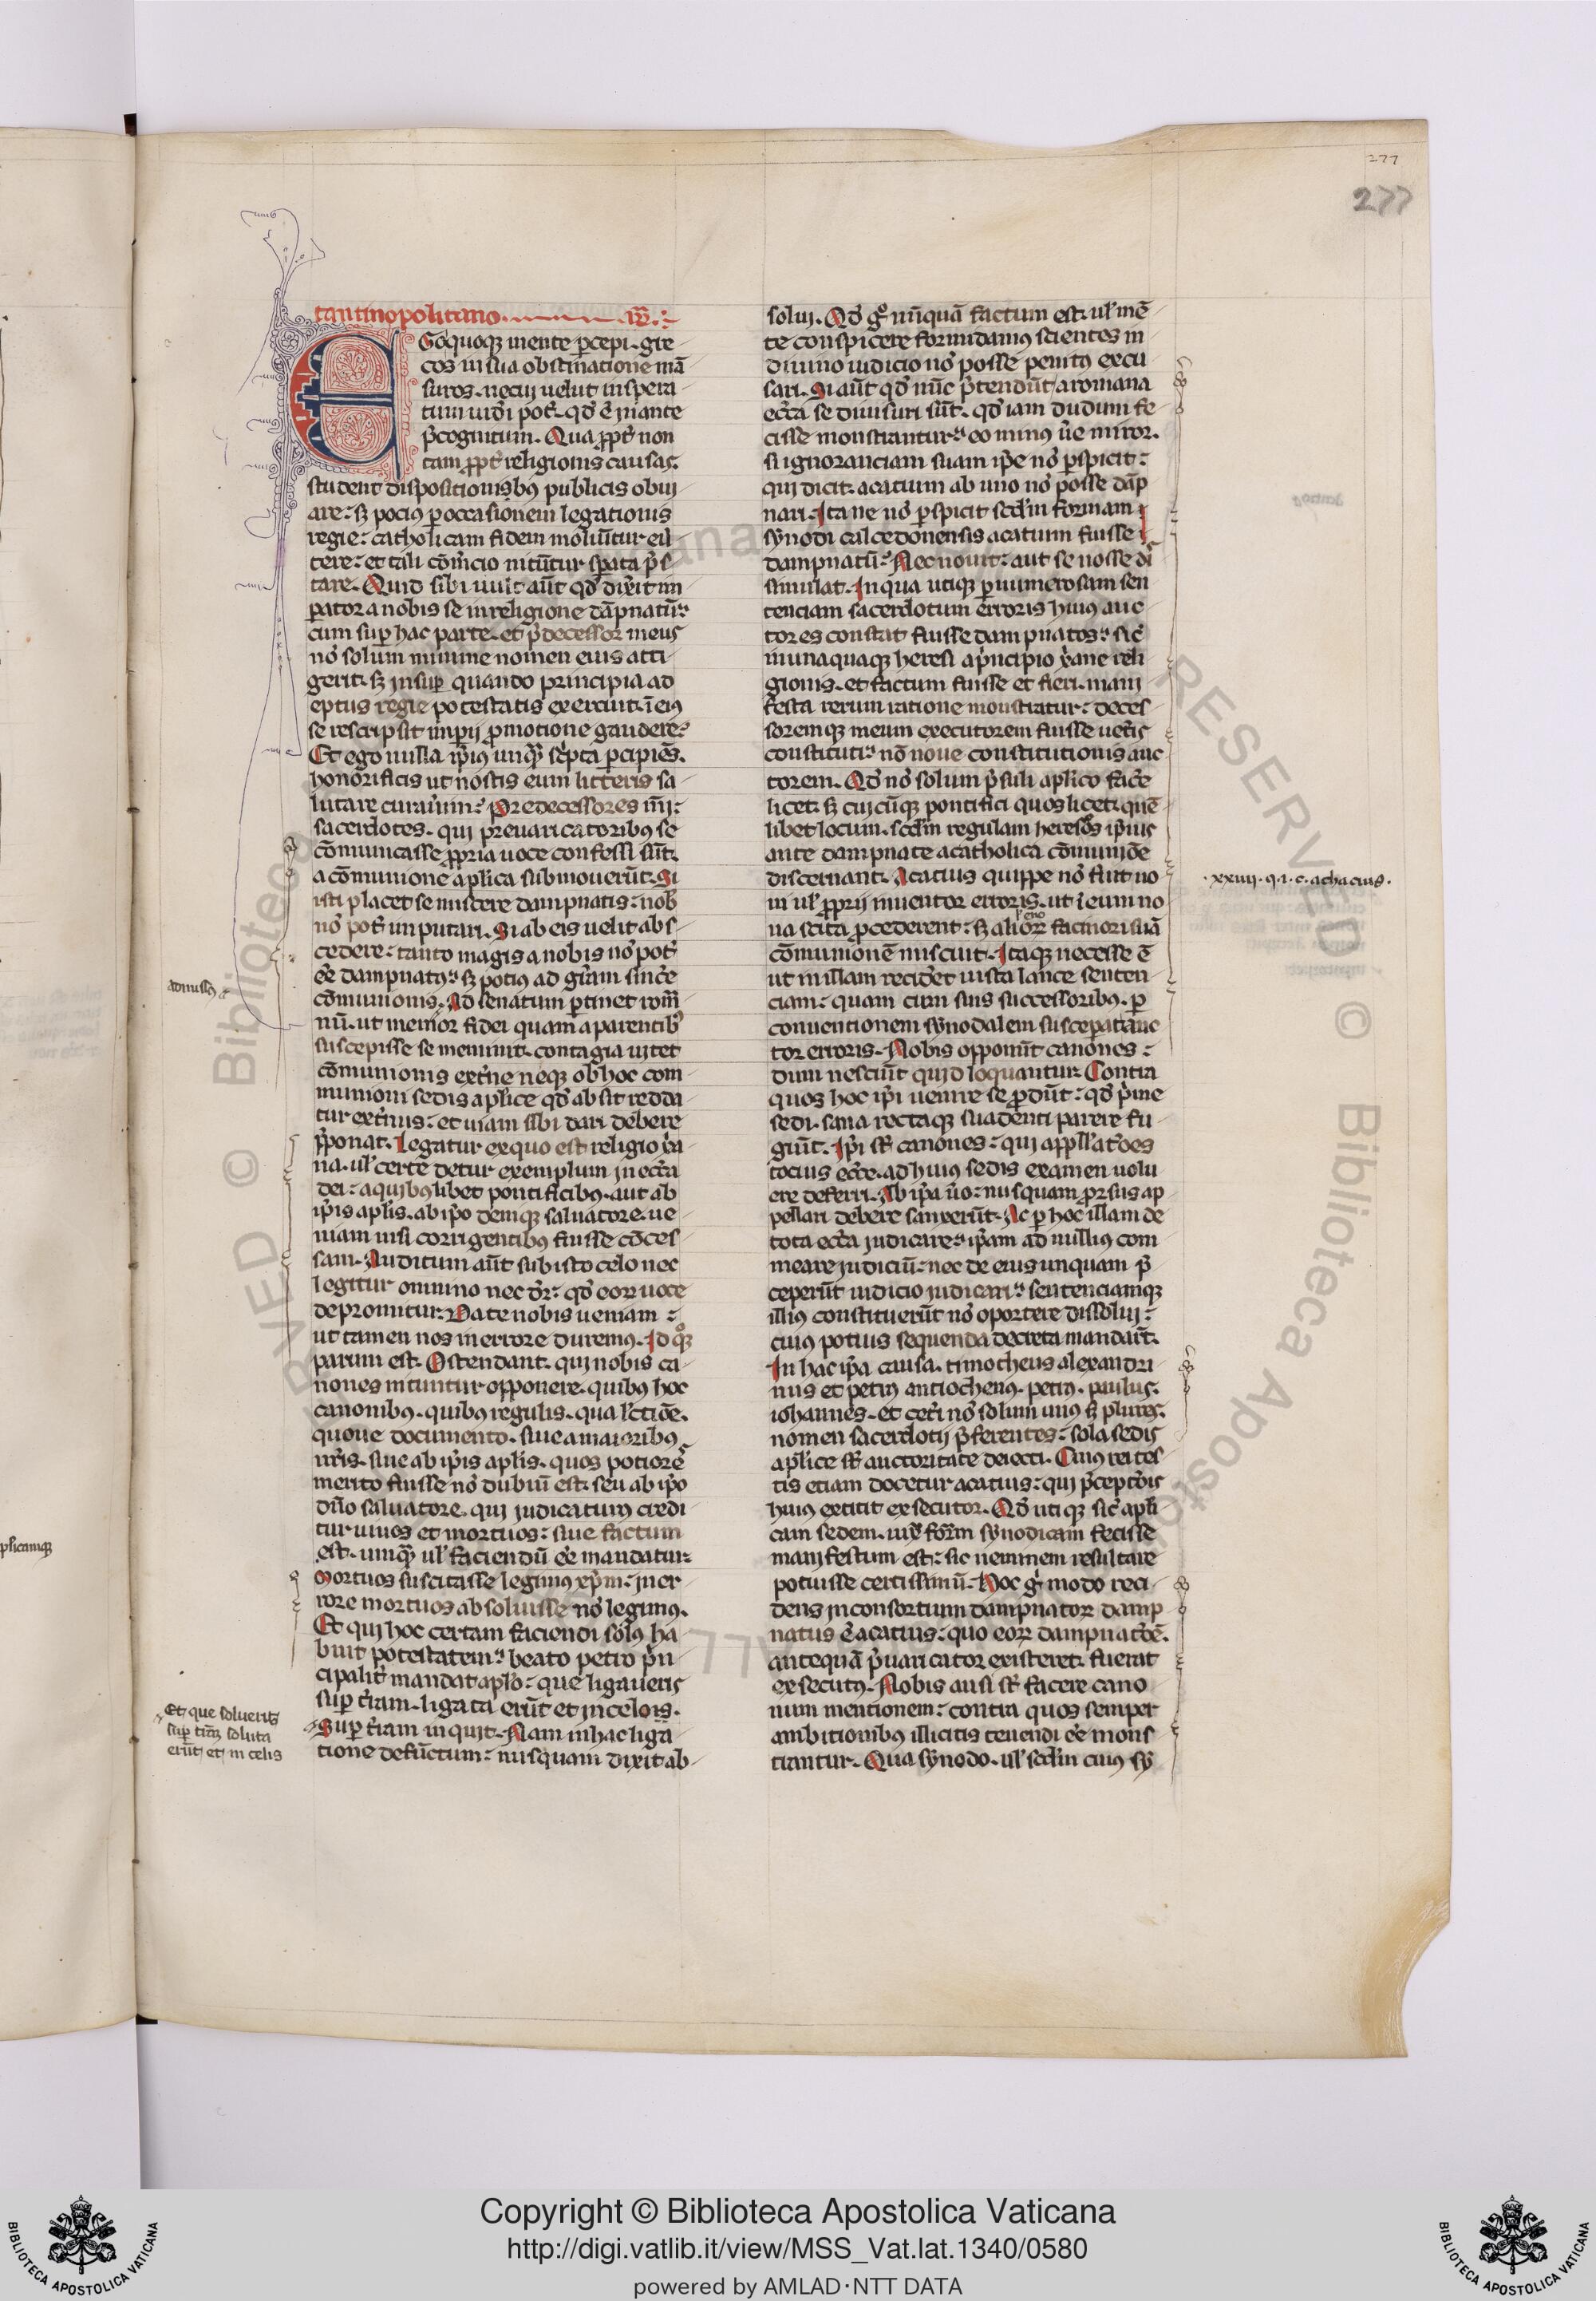 277
277
tantinopolitano. iiii.
EGo quoque mente ꝑcepi. gre
cos in sua obstinatione mã
suros. nec ui uelut inspera
tum uidi̾ pot̾. qd̾ ẽ ii ante
p̾cognitum. Qua ꝓpt̾ non
tam ꝓpt̾ religionis causas
student dispositionibꝰ publicis obui
are: sꝫ pociꝰ ꝑ occasionem legationis
regie: catholicam fidem moliũtur eu̾
tere: et tali cõm̾cio nitũtur spata p̾s
tare. Quid sibi uult aũt qd̾ dix̾it im
ꝑator a nobis se in religione dãpnatũ:
cum suꝑ hac parte. et p̾decessor meus
no̾ solum minime nomen eius atti
gerit. sꝫ insuꝑ quando principia ad
eptus regie potestatis exercuit. ĩ eiꝰ
se rescripsit imꝑij ꝓmotione gaudere:
Et ego nulla ip̾iꝰ unq̃ʒ sc̾pta ꝑcipiẽs.
honorificis ut nostis eum litteris sa
lutare curau̾im: Predecessores mi̾:
sacerdotes. qui preuaricatoribꝰ se
cõmunicasse ꝓpria uoce confessi sũt.
a cõmunione aplica submouerũt. Si
isti placet se miscere dampnatis: nob̾
no̾ pot̾ inputari. Si ab eis uelit abs
cedere: tanto magis a nobis no̾ pot̾
ee̾ dampnatꝰ: sꝫ potiꝰ ad gr̃am sinc̾e
cõmunionis. Ad senatum ꝑtinet rom̃
nũ. ut memor fidei quam a parentib̾
suscepisse se meminit. contagia uitet
cõmunionis ext̾ne neqꝫ ob hoc com
munioni sedis aplice qd̾ absit redda
tur ext̾nus: et uiam sibi dari debere
p̾ponat. Legatur ex quo est religio x̾a
na. ul̾ certe detur exemplum in ecc̾a
dei: a quibꝰlibet pontificibꝰ. aut ab
ip̾is aplis. ab ip̾o deniqꝫ saluatore. ue
niam nisi corrigentibꝰ fuisse cõces
sam. Auditum aũt sub isto celo nec
legitur omnino nec dr̾: qd̾ eoꝝ uoce
depromitur. Date nobis ueniam:
ut tamen nos in errore duremꝰ. Id q̾ꝫ
parum est. Ostendant. qui nobis ca
nones nituntur opponere. quibꝰ hoc
canonibꝰ. quibꝰ regulis. qua lc̾tiõe.
quoue documento. siue a maioribꝰ
nr̃is. siue ab ip̾is aplis. quos potiore̾
merito fuisse no̾ dubiũ est: seu ab ip̾o
dño saluatore. qui iudicaturꝰ credi
tur uiuos et mortuos: siue factum
est. unq̃ʒ ul̾ faciendũ ee̾ mandatur:
Mortuos suscitasse legimꝰ xp̾m: in er
rore mortuos absoluisse no̾ legimꝰ.
Et qui hoc certam faciendi solꝰ ha
buit potestatem: beato petro p̾n
cipalit̾ mandat aplo̾: que ligaueris
suꝑ t̾ram. ligata erũt et in celois.
Suꝑ t̾ram inquit. Nam in hac liga
tione defũctum: nusquam dixit ab
solui. Qd̾ g̊ nũquã factum est. ul̾ mẽ
te conspicere formidamꝰ scientes in
diuino iudicio no̾ posse penitꝰ excu
sari. Si aũt qd̾ nũc p̾tendũt a romana
ecc̾a se diuisuri sũt. qd̾ iam dudum fe
cisse monstrantur: eo minꝰ ũe miror.
si ignoranciam suam ip̾e no̾ ꝑspicit:
qui dicit. acatium ab uno no̾ posse dãp
nari. Ita ne no̾ ꝑspicit scd̾m formam
synodi calcedonensis acatium fuisse
dampnatũ: Nec nouit: aut se nosse di̾
simulat. In qua utiqꝫ ꝑ numerosam sen
tenciam sacerdotum erroris huiꝰ auc
tores constat fuisse dampnatos: sic̾
in unaquaqꝫ heresi a p̾ncipio x̾ane reli
gionis. et factum fuisse et fieri. mani
festa rerum ratione monstratur: deces
soremqꝫ meum executorem fuisse uet̾is
constituti: nõ noue constitutionis auc
torem. Qd̾ no̾ solum p̾suli aplico fac̾e
licet. sꝫ cuicũqꝫ pontifici quoslicet. quẽ
libet locum. scd̾m regulam hereseos ip̾ius
ante dampnate a catholica cõmunjõe
discernant. Acatius quippe no̾ fuit no
ui ul̾ ꝓprij inuentor erroris. ut ĩ eum no
ua scita ꝓcederent: sꝫ alioꝝ facinori suã
l̾ eno
cõmunionẽ miscuit. Itaqꝫ necesse ẽ
ut in illam recid̾et iusta lance senten
ciam: quam cum suis successoribꝰ. ꝑ
conuentionem synodalem susceꝑat auc
tor erroris. Nobis opponũt canones:
dum nesciũt quid loquantur. Contra
quos hoc ip̾i uenire se ꝓdũt: qd̾ p̾me
sedi. sana rectaqꝫ suadenti parere fu
giũt. Ip̾i st̾ canones: qui appll̾at̾oes
tocius ecc̾e. ad huiꝰ sedis examen uolu
ere deferri. Ab ip̾a ũo: nusquam ꝓrsus ap
pellari debere sanxerũt. Ac ꝑ hoc illam de
tota ecc̾a iudicare: ip̾am ad nulliꝰ com
meare iudiciũ: nec de eius unquam p̾
ceperũt iudicio iudicari: sentenciamqꝫ
illiꝰ constituerũt no̾ oportere dissolui:
cuiꝰ potius sequenda decreta mandarũt.
In hac ip̾a causa. timotheus alexandri
nus et petrꝰ antiochenꝰ. petrꝰ. paulus.
iohannes. et cet̾i no̾ solum unꝰ sꝫ plures.
nomen sacerdotij p̾ferentes: sola sedis
aplice st̾ auctoritate deiecti. Cuiꝰ rei tes
tis etiam docetur acatius: qui p̾cept̾ois
huiꝰ extitit exsecutor. Qd̾ utiqꝫ sic̾ apli
cam sedem. iux̾ form̃ synodicam fecisse
manifestum est: sic neminem resultare
potuisse certissimũ. Hoc g̾ modo reci
dens in consortium dampnatoꝝ damp
natus ẽ acatius: quo eoꝝ dampnac̾oẽ.
antequã p̾uaricator existeret. fuerat
exsecutꝰ. Nobis ausi st̾ facere cano
num mentionem: contra quos semper
ambitionibꝰ illicitis tenendi ee̾ mons
trantur. Qua synodo. ul̾ scd̾m cuiꝰ sy
admissꝰ ẽ
plicamqꝫ
Et que solueris
suꝑ tr̃m soluta
erũt et in celis
.xxiiij. q. i. c. achacius.
Copyright © Biblioteca Apostolica Vaticana
http://digi.vatlib.it/view/MSS_Vat.lat.1340/0580
powered by AMLAD·NTT DATA
BIBLIOTECA APOSTOLICA VATICANA
BIBLIOTECA APOSTOLICA VATICANA